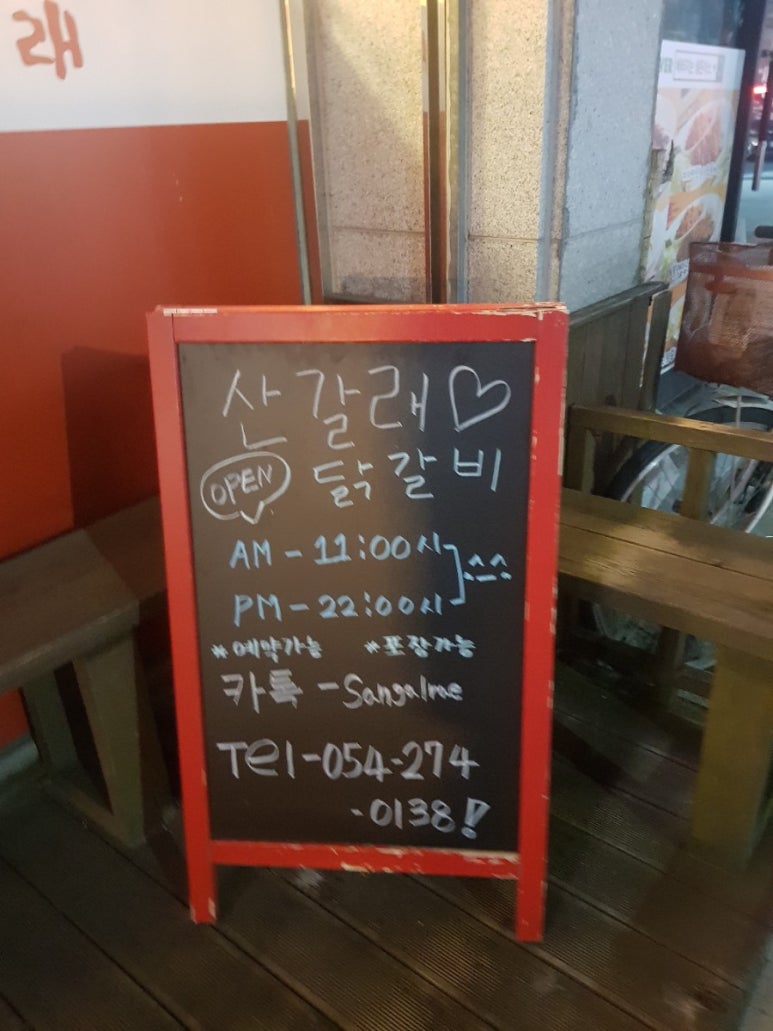 래
산갈래♡
OPEN 닭갈비
AM - 11:00시
PM - 22:00시 ^_^
*예약가능 *포장가능
카톡 - Sangalrae
Tel-054-274
-0138!